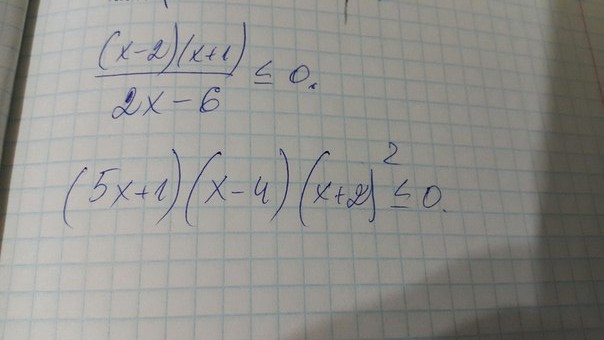 (x-2)(x+1)
2x-6
≤ 0.
(5x+1)(x-4)(x+2)² ≤ 0.